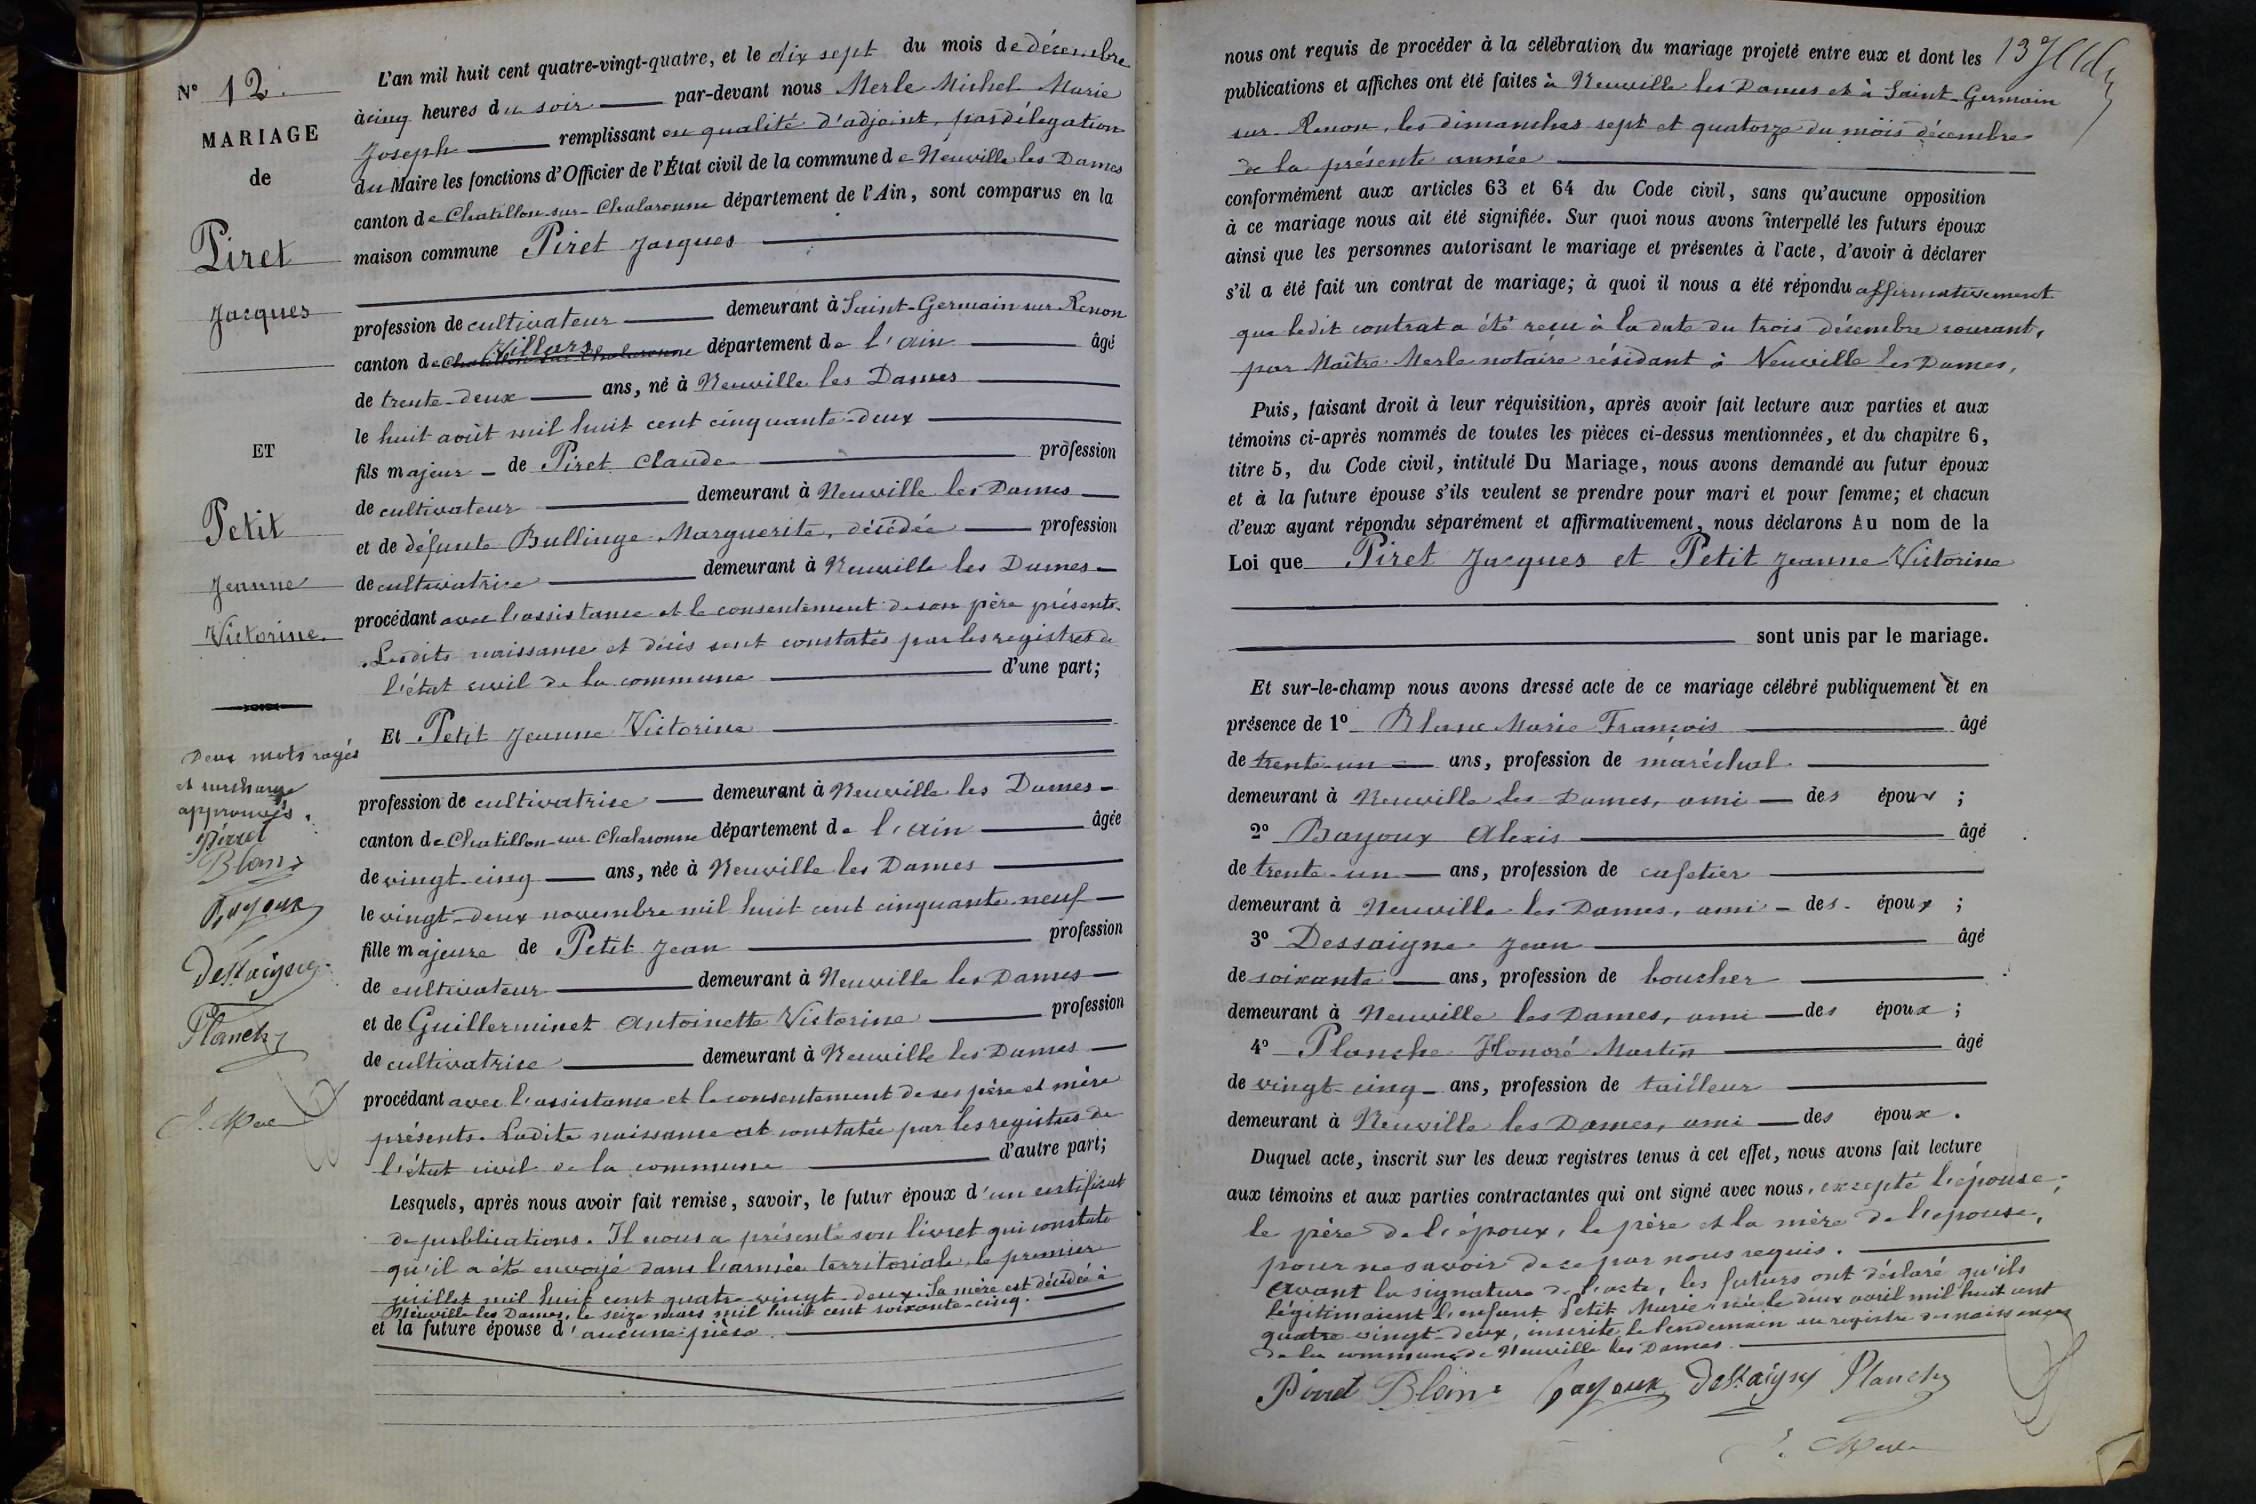 N° 12.
MARIAGE
de
Piret
Jacques
ET
Petit
Jeanne
Victorine.
Deux mots rayés
et surcharge
approuvés.
Pirret
Blanc
Payoux
Dessaigne
Planche
J. Merle
L'an mil huit cent quatre-vingt-quatre, et le dix sept du mois de décembre
à cinq heures du soir par-devant nous Merle Michel Marie
Joseph remplissant en qualité d'adjoint, par délégation
du Maire les fonctions d'Officier de l'État civil de la commune de Neuville les Dames
canton de Chatillon-sur-Chalaronne département de l'Ain, sont comparus en la
maison commune Piret Jacques
profession de cultivateur demeurant à Saint-Germain sur Renon
canton de Chatillon sur Chalaronne Villars département de l'ain âgé
de trente-deux ans, né à Neuville les Dames
le huit août mil huit cent cinquante-deux
fils majeur de Piret Claude profession
de cultivateur demeurant à Neuville les Dames
et de défunte Bullinge Marguerite, décédée profession
de cultivatrice demeurant à Neuville les Dames
procédant avec l'assistance et le consentement de son père présent.
Lesdits naissance et décès sont constatés par les registres de
l'état civil de la commune d'une part;
Et Petit Jeanne Victorine
profession de cultivatrice demeurant à Neuville les Dames
canton de Chatillon-sur-Chalaronne département de l'ain âgée
de vingt-cinq ans, née à Neuville les Dames
le vingt-deux novembre mil huit cent cinquante-neuf
fille majeure de Petit Jean profession
de cultivateur demeurant à Neuville les Dames
et de Guillerminet Antoinette Victorine profession
de cultivatrice demeurant à Neuville les Dames
procédant avec l'assistance et le consentement de ses père et mère
présents. Ladite naissance est constatée par les registres de
l'état civil de la commune d'autre part;
Lesquels, après nous avoir fait remise, savoir, le futur époux d'un certificat
de publications. Il nous a présenté son livret qui constate
qu'il a été envoyé dans l'armée territoriale le premier
juillet mil huit cent quatre-vingt-deux. Sa mère est décédée à
Neuville les Dames, le seize mars mil huit cent soixante-cinq.
et la future épouse d'aucune pièce.
nous ont requis de procéder à la célébration du mariage projeté entre eux et dont les
publications et affiches ont été faites à Neuville les Dames et à Saint-Germain
sur-Renon, les dimanches sept et quatorze du mois décembre
de la présente année
conformément aux articles 63 et 64 du Code civil, sans qu'aucune opposition
à ce mariage nous ait été signifiée. Sur quoi nous avons interpellé les futurs époux
ainsi que les personnes autorisant le mariage et présentes à l'acte, d'avoir à déclarer
s'il a été fait un contrat de mariage; à quoi il nous a été répondu affirmativement
que ledit contrat a été reçu à la date du trois décembre courant,
par Maître Merle notaire résidant à Neuville les Dames,
Puis, faisant droit à leur réquisition, après avoir fait lecture aux parties et aux
témoins ci-après nommés de toutes les pièces ci-dessus mentionnées, et du chapitre 6,
titre 5, du Code civil, intitulé Du Mariage, nous avons demandé au futur époux
et à la future épouse s'ils veulent se prendre pour mari et pour femme; et chacun
d'eux ayant répondu séparément et affirmativement, nous déclarons Au nom de la
Loi que Piret Jacques et Petit Jeanne Victorine
sont unis par le mariage.
Et sur-le-champ nous avons dressé acte de ce mariage célébré publiquement et en
présence de 1° Blanc Marie François âgé
de trente-un ans, profession de maréchal
demeurant à Neuville les Dames, ami des époux ;
2° Bayoux Alexis âgé
de trente-un ans, profession de cafetier
demeurant à Neuville les Dames, ami des époux ;
3° Dessaigne Jean âgé
de soixante ans, profession de boucher
demeurant à Neuville les Dames, ami des époux ;
4° Planche Honoré Martin âgé
de vingt-cinq ans, profession de tailleur
demeurant à Neuville les Dames, ami des époux.
Duquel acte, inscrit sur les deux registres tenus à cet effet, nous avons fait lecture
aux témoins et aux parties contractantes qui ont signé avec nous, excepté l'épouse,
le père de l'époux, le père et la mère de l'épouse,
pour ne savoir de ce par nous requis.
Avant la signature de l'acte, les futurs ont déclaré qu'ils
légitimaient l'enfant Petit Marie née le deux avril mil huit cent
quatre-vingt-deux, inscrite le lendemain au registre des naissances
de la commune de Neuville les Dames.
Pirret Blanc Payoux Dessaigne Planche
J. Merle